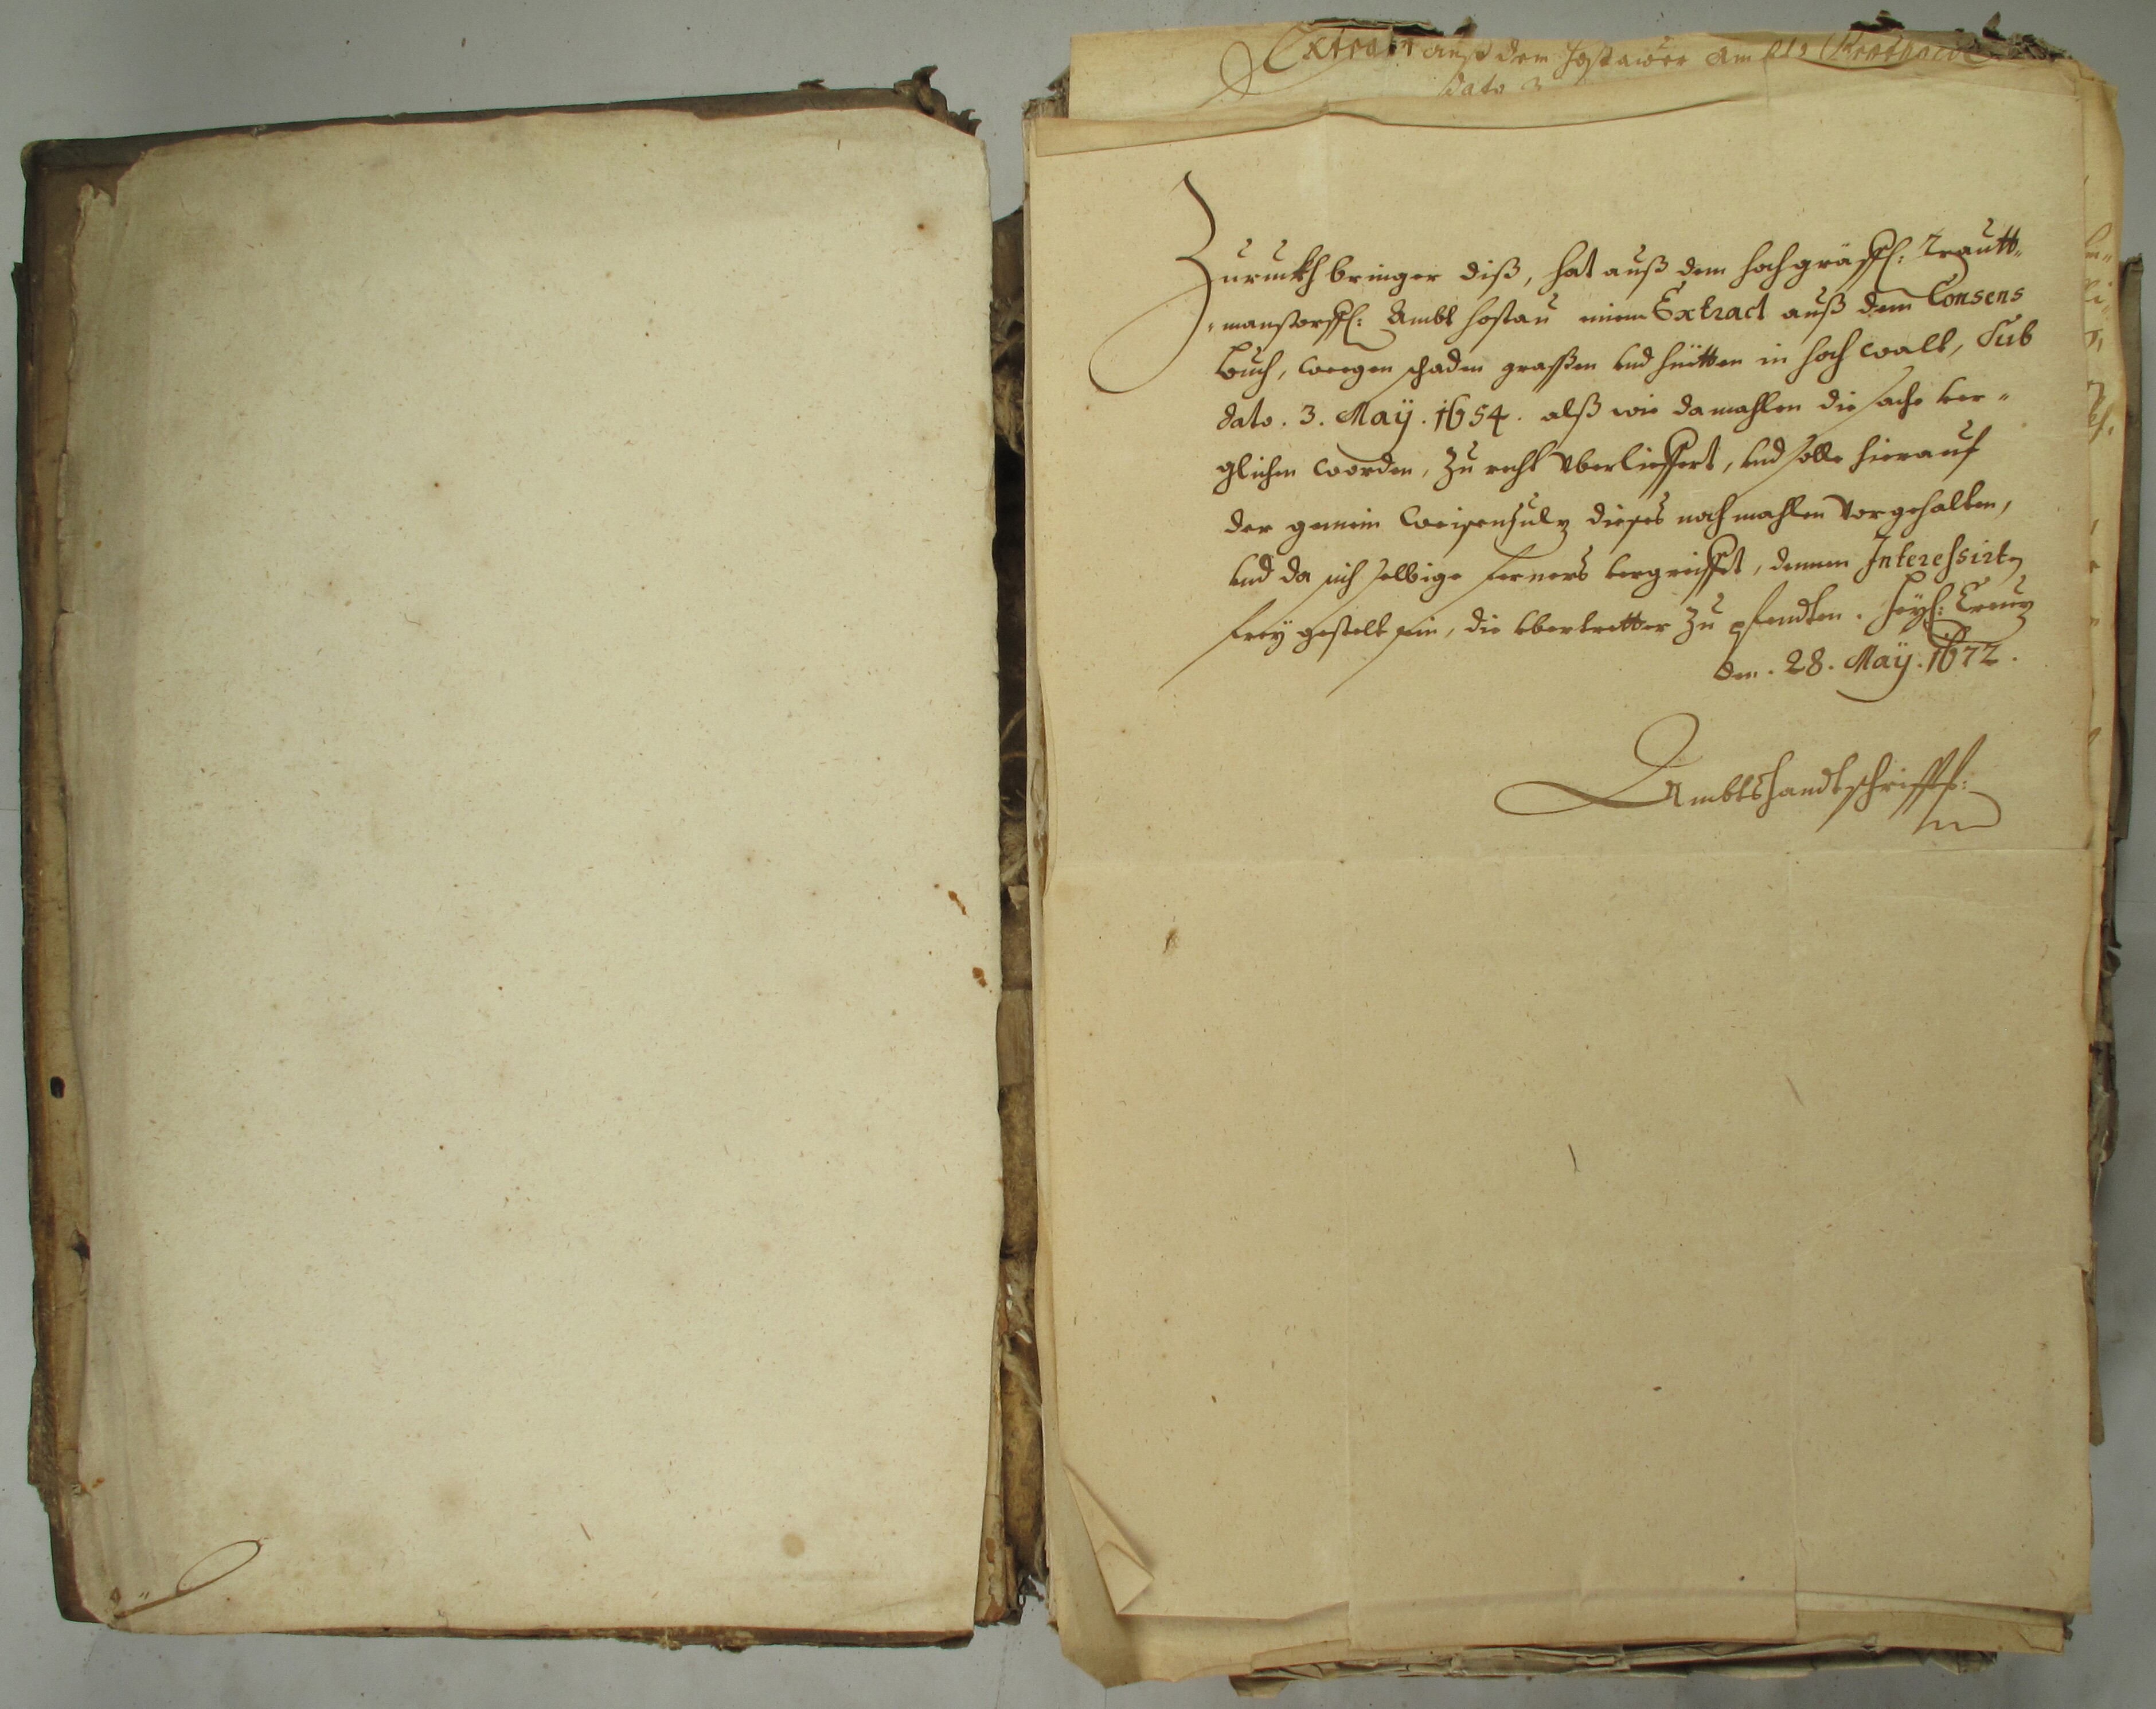 Extract auß dem Hostawer Ambts
dato 3
Zuruckh bringer diß, hat auß dem Hochgräffl: Trautt„
„manstorffl: Ambt Hostau einen Extract auß dem Consens
Buch, weegen schaden graßen vnd hütten in hoch walt, Sub
dato. 3. Maÿ. 1654. alß wie damahlen die sache ver„
glichen worden, Zu recht vberlieffert, vnd solle hierauf
der gemein Weisensulz dieses nochmahlen vorgehalten,
vnd da sich selbige ferners vergreiffet, denen Interessirten
freÿ gestelt sein, die vbertretter Zu pfendten. Heÿl: Creuz
den. 28. Maÿ. 1672.
Ambtshandtschrifft: